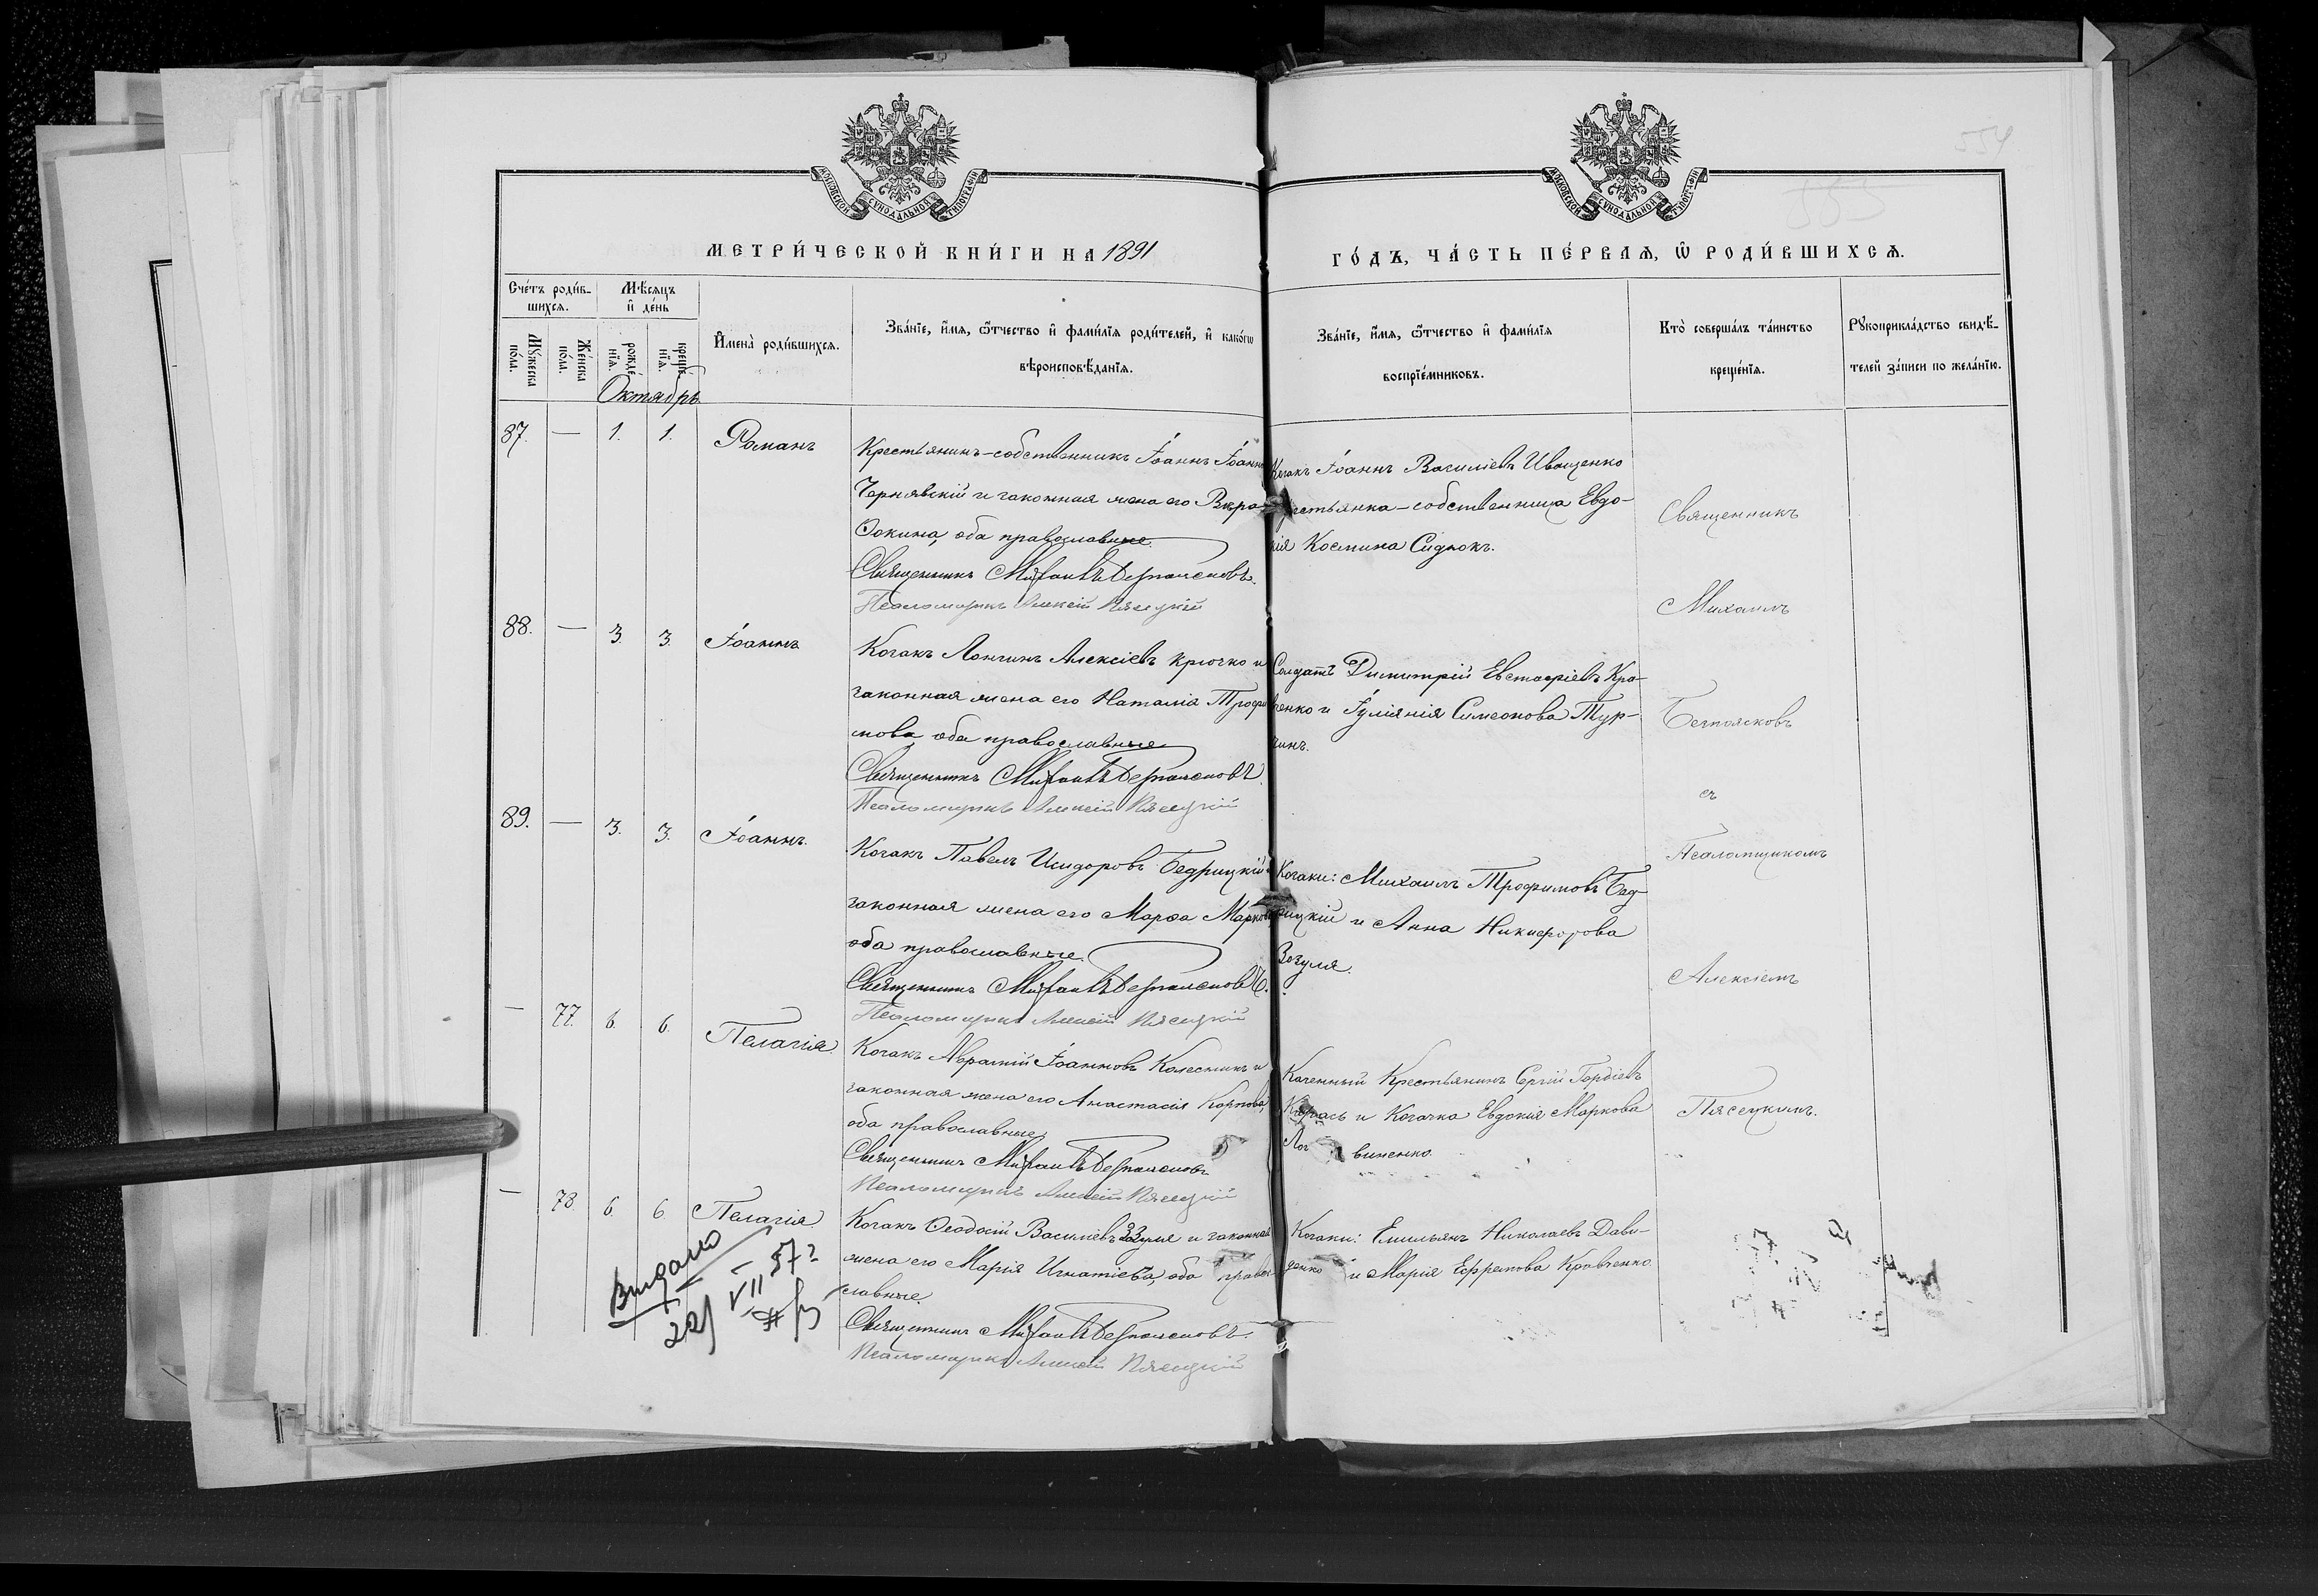 554
555
МОСКОВСКОЙ СѴНОДАЛЬНОЙ ТИПОГРАФІИ
МОСКОВСКОЙ СѴНОДАЛЬНОЙ ТИПОГРАФІИ
МЕТРИ́ЧЕСКОЙ КНИ́ГИ НА 1891
ГО́ДЪ, ЧА́СТЬ ПЕ́РВАѦ, Ѿ РОДИ́ВШИХСѦ.
Сче́тъ роди́в-
шихся.
Мѣ́сяцъ
и҆ де́нь
Мꙋ́жеска
по́ла.
Же́нска
по́ла.
рожде́-
нїя.
креще́-
нїя.
И҆мена̀ роди́вшихся.
Зва́нїе, и҆́мя, ѻ҆́тчество и҆ фами́лїя роди́телей, и҆ како́гѡ
вѣроисповѣ́данїя.
Зва́нїе, и҆́мя, ѻ҆́тчество и҆ фами́лїя
воспрїе́мниковъ.
Кто̀ соверша́лъ та́инство
креще́нїя.
Рꙋкоприкла́дство свидѣ́-
телей за́писи по жела́нїю.
Октябрь
87. — 1. 1. Романъ
Крестьянинъ-собственникъ Іоаннъ Іоанно
Чернявскій и законная жена его Вѣра
Ѳокина, оба православные.
Священникъ Михаилъ Безпоясковъ.
Псаломщикъ Алексій Пясецкій
Козакъ Іоаннъ Василіевъ Иващенко
крестьянка-собственница Евдо-
кія Космина Сиднокъ.
88. — 3. 3. Іоаннъ
Козакъ Лонгинъ Алексіевъ Крючко и
законная жена его Наталія Трофи
мова, оба православные.
Священникъ Михаилъ Безпоясковъ
Псаломщикъ Алексій Пясецкій
Солдатъ Димитрій Евстафіевъ Кра-
вченко и Іуліянія Симеонова Тур-
чинъ.
89. — 3. 3. Іоаннъ.
Козакъ Павелъ Исидоровъ Бедрицкій и
законная жена его Марѳа Маркова
оба православные.
Священникъ Михаилъ Безпоясковъ.
Псаломщикъ Алексій Пясецкій
Козаки: Михаилъ Трофимовъ Бед-
рицкій и Анна Никифорова
Зозуля.
— 77. 6. 6. Пелагія.
Козакъ Аврамій Іоанновъ Колесникъ и
законная жена его Анастасія Карпова,
оба православные.
Священникъ Михаилъ Безпоясковъ
Псаломщикъ Алексій Пясецкій
Казенный Крестьянинъ Сергій Гордіевъ
Карась и Козачка Евдокія Маркова
Логвиненко.
— 78. 6. 6. Пелагія
Козакъ Ѳеодосій Василіевъ Зозуля и законная
жена его Марія Игнатіева, оба право-
славные.
Священникъ Михаилъ Безпоясковъ.
Псаломщикъ Алексій Пясецкій
Козаки: Емильянъ Николаевъ Дави-
денко и Марія Ефремова Кравченко.
Священникъ
Михаилъ
Безпоясковъ
съ
Псаломщикомъ
Алексіемъ
Пясецкимъ.
Видано
22/VII 57 г